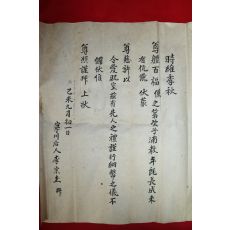 時維季秋
尊體百福 僕之
年旣長成未
有伉儷 伏蒙
尊慈許以
令愛貺室玆有先人之禮謹行納幣之儀不
備伏惟
尊照謹拜 上狀
己未九月初一日
後人李 拜